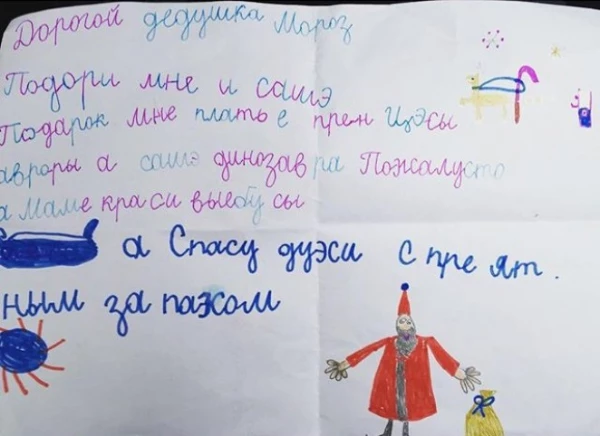 Дорогой дедушка Мороз
Подори мне и сашэ
Подарок мне плать е прен Цэсы
авроры а сашэ динозавра Пожалусто
а маме краси выебу сы
а Спасу дуэси с пре ят.
ным за пахом